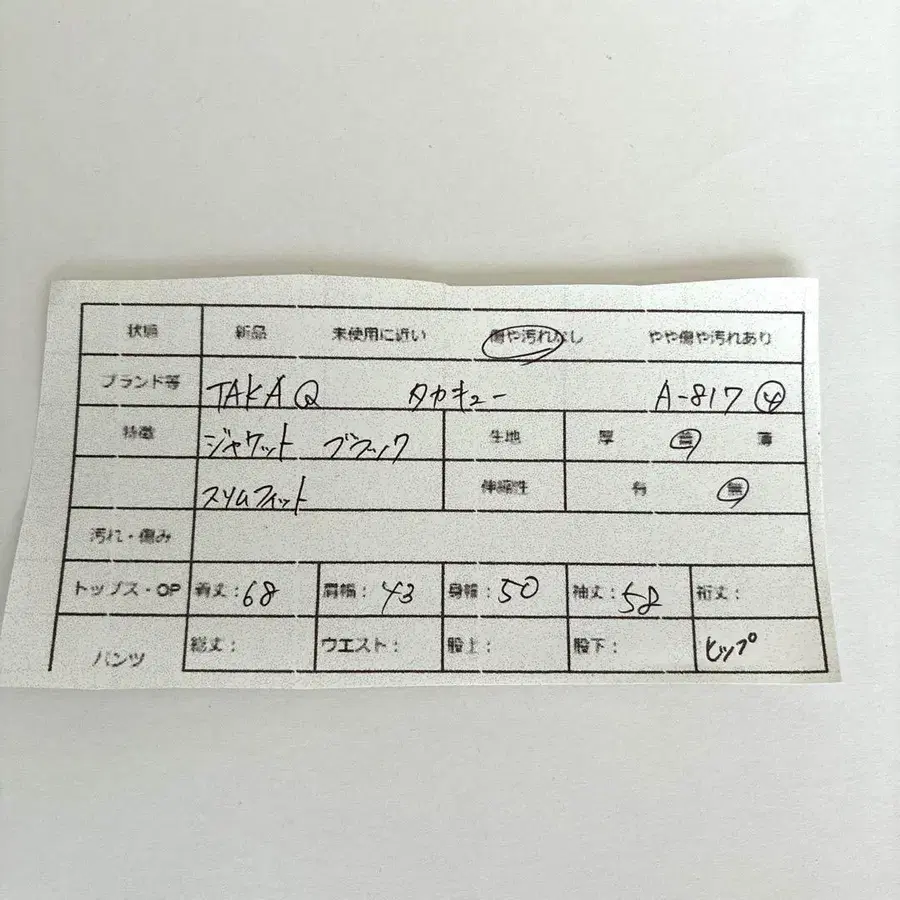 状態 新品 未使用に近い 傷や汚れなし やや傷や汚れあり
ブランド等 TAKA Q タカキュー A-817 ④
特徴 ジャケット ブラック 生地 厚 普 薄
スリムフィット 伸縮性 有 無
汚れ・傷み
トップス・OP 着丈:68 肩幅:43 身幅:50 袖丈:58 裄丈:
パンツ 総丈: ウエスト: 股上: 股下: ヒップ